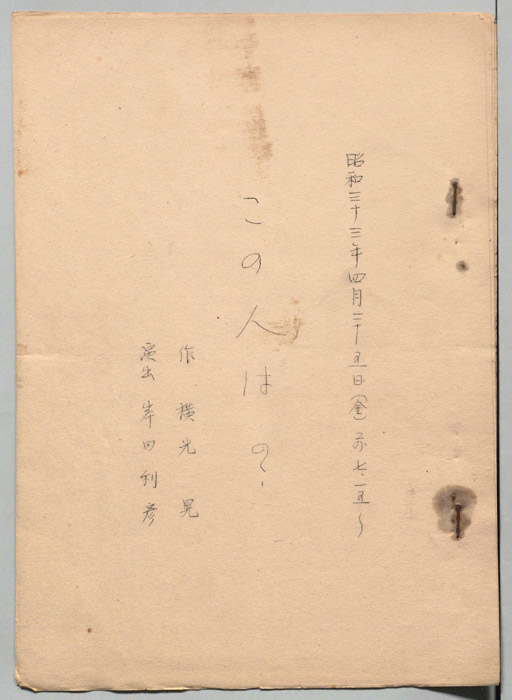 昭和三十三年四月二十五日(金)前七.一五〜
この人はの
作 横光 晃
演出 岸田利彦